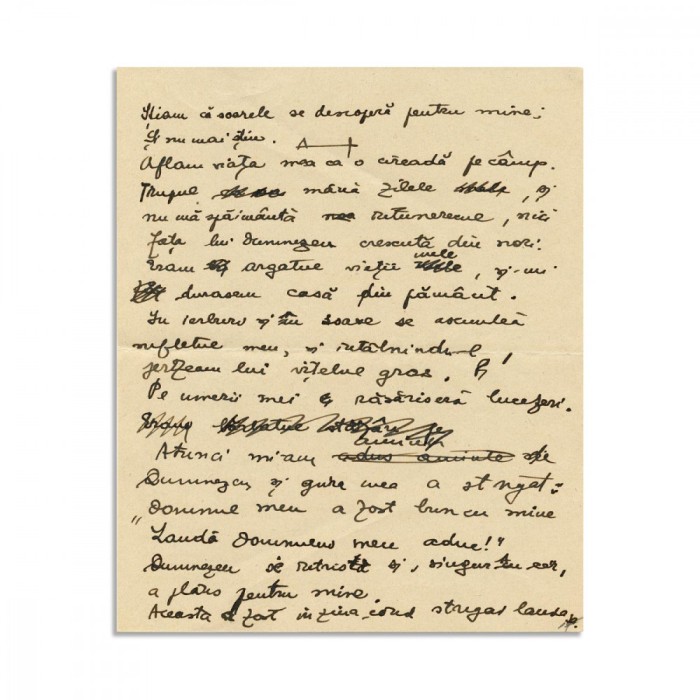 Știam că soarele se descoperă pentru mine;
Și nu mai știu.
Aflam viața mea ca o cireadă pe câmp.
Trupul mână zilele, și
nu mă spăimânta întunerecul, nici
fața lui Dumnezeu crescută din nori.
Eram argatul vieții mele, și-mi
durasem casă din pământ.
În ierburi și în soare se ascundea
sufletul meu, și întâlnindu-l
jertfeam lui vițelul gras.
Pe umerii mei răsăriseră luceferi.
Eram
Atunci mi-am amintit de
Dumnezeu, și gura mea a strigat:
"Domnul meu a fost bun cu mine
Laudă Domnului meu aduc!"
Dumnezeu s'e întrista și, singur în cer,
a plâns pentru mine.
Aceasta a fost în ziua când strigas lauda